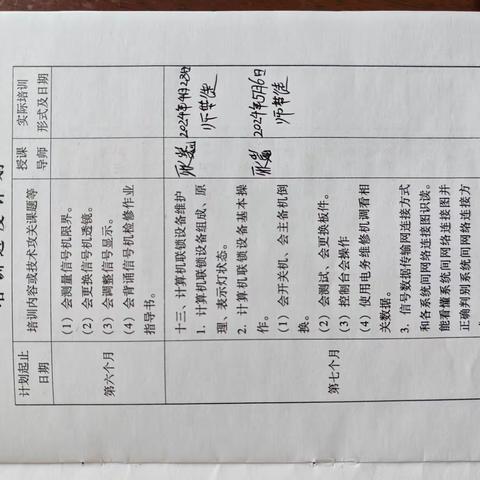 培训进度计划
计划起止
日期
培训内容或技术攻关课题等
授课
导师
实际培训
形式及日期
第六个月
（1）会测量信号机限界。
（2）会更换信号机透镜。
（3）会调整信号显示。
（4）会背诵信号机检修作业
指导书。
第七个月
十三、计算机联锁设备维护
1. 计算机联锁设备组成、原
理、表示灯状态。
2. 计算机联锁设备基本操
作。
（1）会开关机、会主备机倒
换。
（2）会测试、会更换板件。
（3）控制台会操作
（4）使用电务维修机调看相
关数据。
3. 信号数据传输网连接方式
和各系统间网络连接图识读。
能看懂系统间网络连接图并
正确判别系统间网络连接方
2024年4月23日
师带徒
2024年5月6日
师带徒